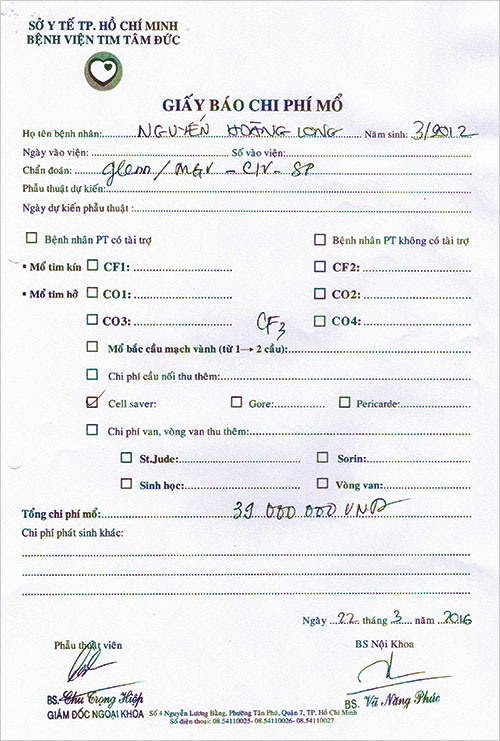 SỞ Y TẾ TP. HỒ CHÍ MINH
BỆNH VIỆN TIM TÂM ĐỨC
GIẤY BÁO CHI PHÍ MỔ
Họ tên bệnh nhân: NGUYỄN HOÀNG LONG Năm sinh: 3/2012
Ngày vào viện: Số vào viện:
Chẩn đoán: Glenn / MGV - CIV - SP
Phẫu thuật dự kiến:
Ngày dự kiến phẫu thuật :
Bệnh nhân PT có tài trợ Bệnh nhân PT không có tài trợ
Mổ tim kín CF1: CF2:
Mổ tim hở CO1: CO2:
CO3: CF3 CO4:
Mổ bắc cầu mạch vành (từ 1→ 2 cầu):
Chi phí cầu nối thu thêm:
Cell saver: Gore: Pericarde:
Chi phí van, vòng van thu thêm:
St.Jude: Sorin:
Sinh học: Vòng van:
Tổng chi phí mổ: 39 000 000 VNĐ
Chi phí phát sinh khác:
Ngày 22 tháng 3 năm 2016
Phẫu thuật viên BS Nội Khoa
BS. Chu Trọng Hiệp BS. Vũ Năng Phúc
GIÁM ĐỐC NGOẠI KHOA
Số 4 Nguyễn Lương Bằng, Phường Tân Phú, Quận 7, TP. Hồ Chí Minh
Số điện thoại: 08.54110025- 08.54110026- 08.54110027